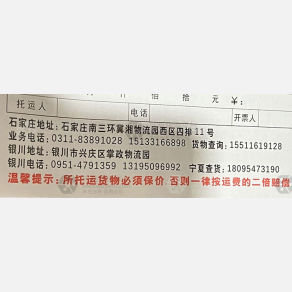 佰 拾 元 ¥：
托运人 电话 开票人
石家庄地址：石家庄南三环冀湘物流园西区四排11号
业务电话：0311-83891028 15133166898 货物查询：15511619128
银川地址：银川市兴庆区掌政物流园
银川电话：0951-4791359 13195096992 宁夏查货：18095473190
温馨提示：所托运货物必须保价 否则一律按运费的二倍赔偿